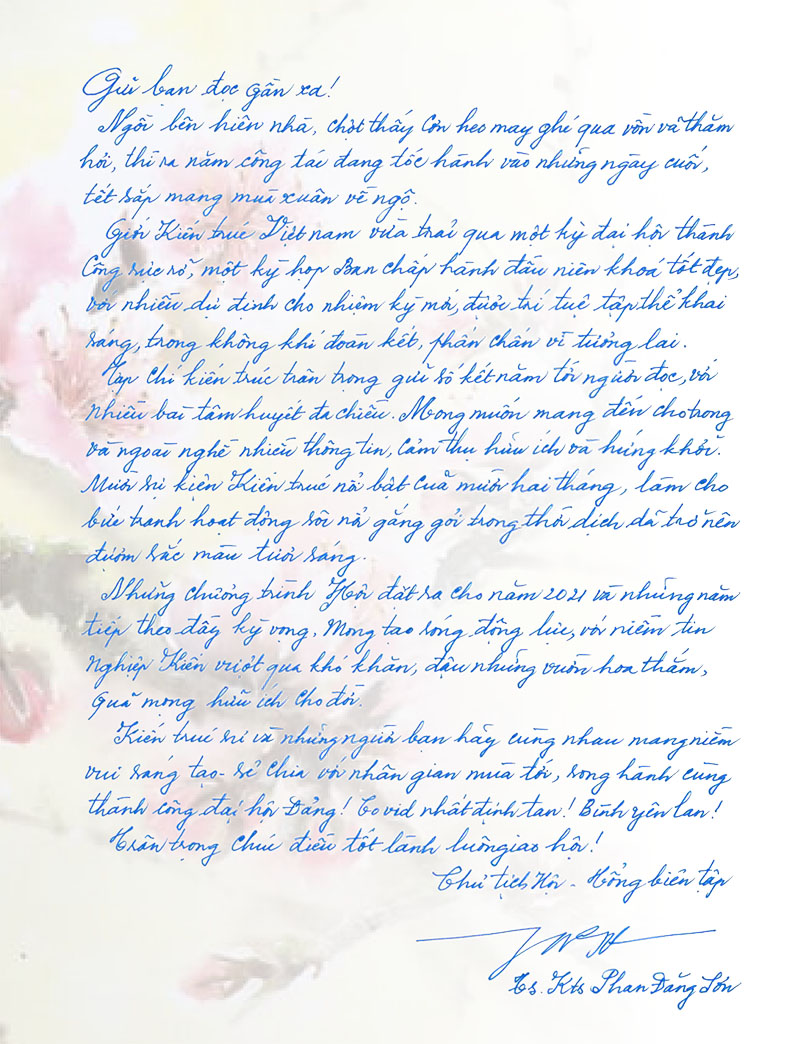 Gửi bạn đọc gần xa!
Ngồi bên hiên nhà, chợt thấy cơn heo may ghé qua vồn vã thăm
hỏi, thì ra năm công tác đang tốc hành vào những ngày cuối,
tết sắp mang mùa xuân về ngõ.
Giới Kiến trúc Việt nam vừa trải qua một kỳ đại hội thành
công rực rỡ, một kỳ họp Ban chấp hành đầu niên khoá tốt đẹp,
với nhiều dự định cho nhiệm kỳ mới, được trí tuệ tập thể khai
sáng, trong không khí đoàn kết, phấn chấn vì tương lai.
Tạp chí kiến trúc trân trọng gửi số kết năm tới người đọc, với
nhiều bài tâm huyết đa chiều. Mong muốn mang đến cho trong
và ngoài nghề nhiều thông tin, cảm thụ hữu ích và hứng khởi.
Mười sự kiện Kiến trúc nổi bật của mười hai tháng, làm cho
bức tranh hoạt động sôi nổi gắng gỏi trong thời dịch dã trở nên
đượm sắc màu tươi sáng.
Những chương trình Hội đặt ra cho năm 2021 và những năm
tiếp theo đầy kỳ vọng. Mong tạo sóng động lực, với niềm tin
Nghiệp Kiến vượt qua khó khăn, đậu những vườn hoa thắm,
quả mọng hữu ích cho đời.
Kiến trúc sư và những người bạn hãy cùng nhau mang niềm
vui sáng tạo - sẻ chia với nhân gian mùa tới, song hành cùng
thành công đại hội Đảng! Covid nhất định tan! Bình yên lan!
Trân trọng chúc điều tốt lành luôn giao hội!
Chủ tịch Hội - Tổng biên tập
Ts. Kts Phan Đăng Sơn